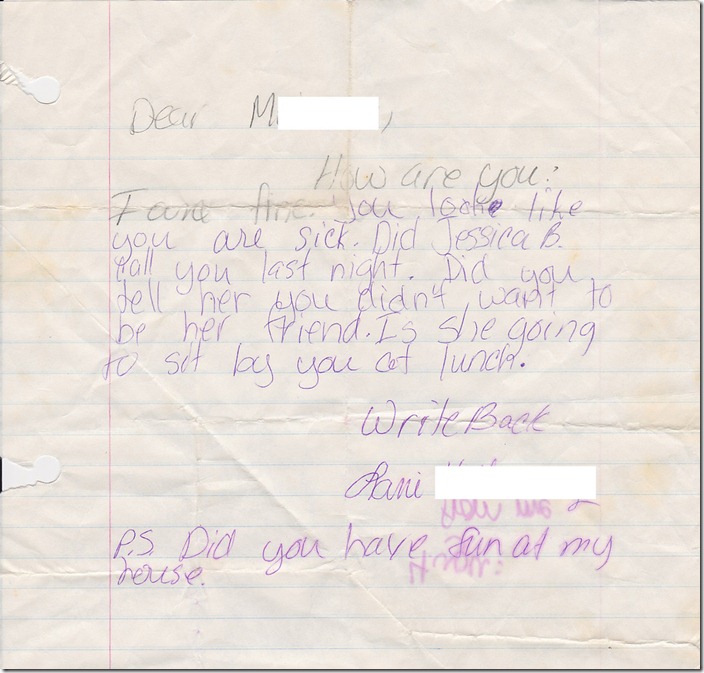 Dear M
How are you:
I am fine. You look like
you are sick. Did Jessica B.
call you last night. Did you
tell her you didn't want to
be her friend. Is she going
to sit by you at lunch.
Write Back
P.S. Did you have fun at my
house.